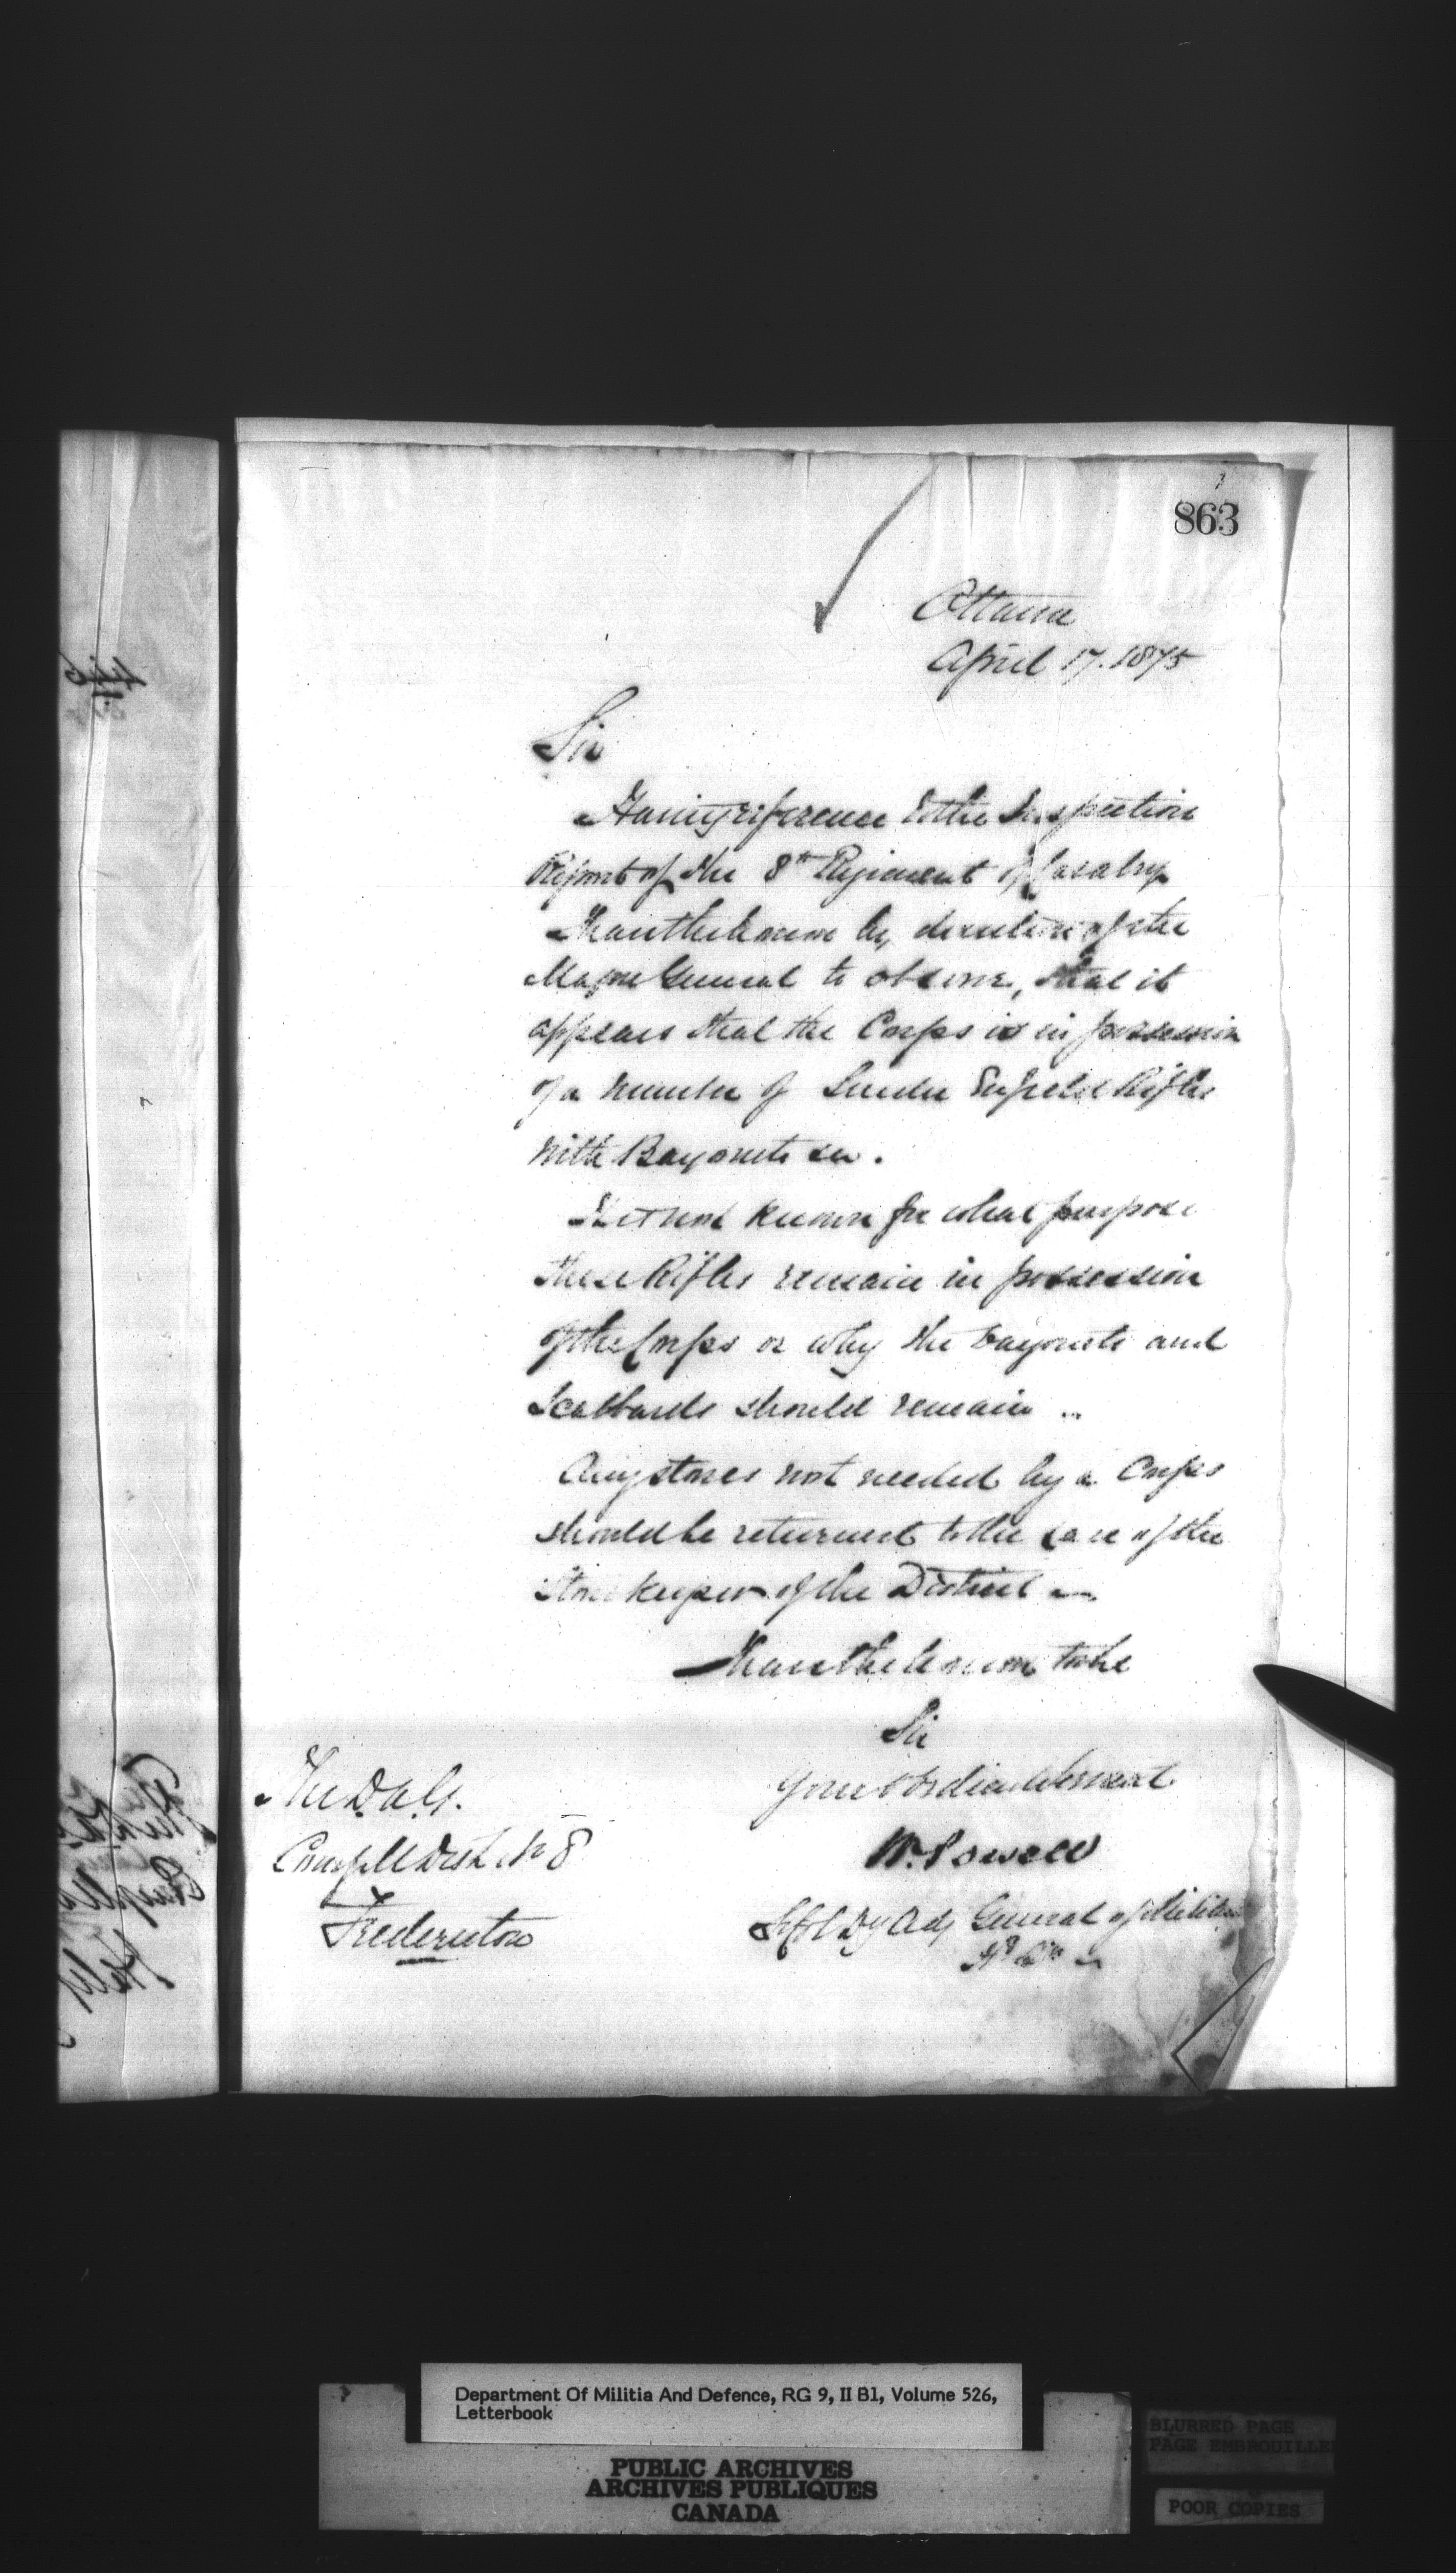 863
Ottawa
April 17. 1875
Sir
Having reference to the Inspection
Report of the 8th Regiment of Cavalry
I have the honour by direction of the
Major General to observe, that it
appears that the Corps is in possession
of a number of Snider Enfield Rifles
with Bayonets &c.
It is not known for what purpose
these Rifles remain in possession
of the Corps or why the bayonets and
Scabbards should remain
Any stores not needed by a Corps
should be returned to the care of the
Store keeper of the District
I have the honour to be
Sir
Your obedient Servant
W. Powell
Lt Col Dy Adj General of Militia
The D.A.G.
Comg M Dist No 8
Fredericton
Department Of Militia And Defence, RG 9, II B1, Volume 526,
Letterbook
PUBLIC ARCHIVES
ARCHIVES PUBLIQUES
CANADA
BLURRED PAGE
PAGE EMBROUILLE
POOR COPIES